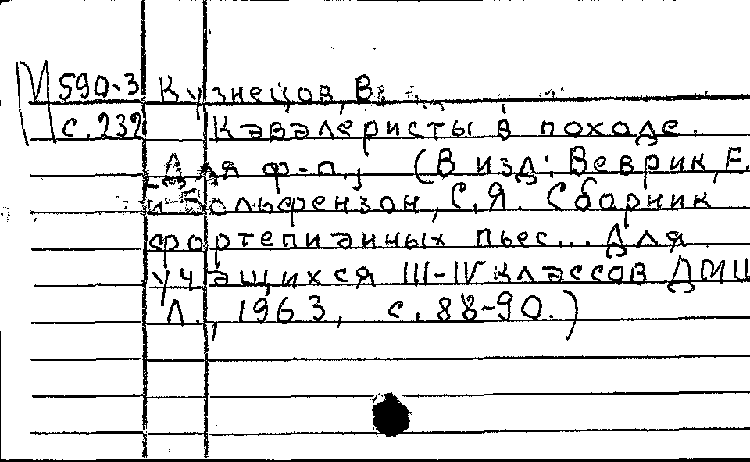 М 590-3 Кузнецов, В
с. 232 Кавалеристы в походе.
Для ф-п., (В изд: Веврик, Е.
и Вольфензон, С.Я. Сборник
фортепианных пьес... Для
учащихся III-IV классов ДМШ
Л., 1963, с. 88-90.)